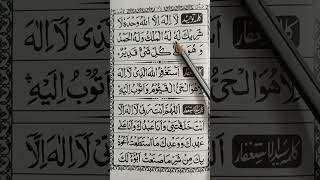 لَا اِلٰهَ اِلَّا اللهُ وَحْدَهٗ لَا
شَرِيْكَ لَهٗ لَهُ الْمُلْكُ وَلَهُ الْحَمْدُ
وَ هُوَ كُلِّ شَيْءٍ قَدِيْرٌ
اَسْتَغْفِرُ اللهَ الَّذِيْ لَا اِلٰهَ
اِلَّا هُوَ الْحَيُّ الْقَيُّوْمُ وَ اَتُوْبُ اِلَيْهِ
اَللّٰهُمَّ اَنْتَ رَبِّيْ لَا اِلٰهَ اِلَّا
اَنْتَ خَلَقْتَنِيْ وَ اَنَا عَبْدُكَ وَ اَنَا عَلٰى
عَهْدِكَ وَ وَعْدِكَ مَا اسْتَطَعْتُ اَعُوْذُ
بِكَ مِنْ شَرِّ مَا صَنَعْتُ اَبُوْءُ لَكَ